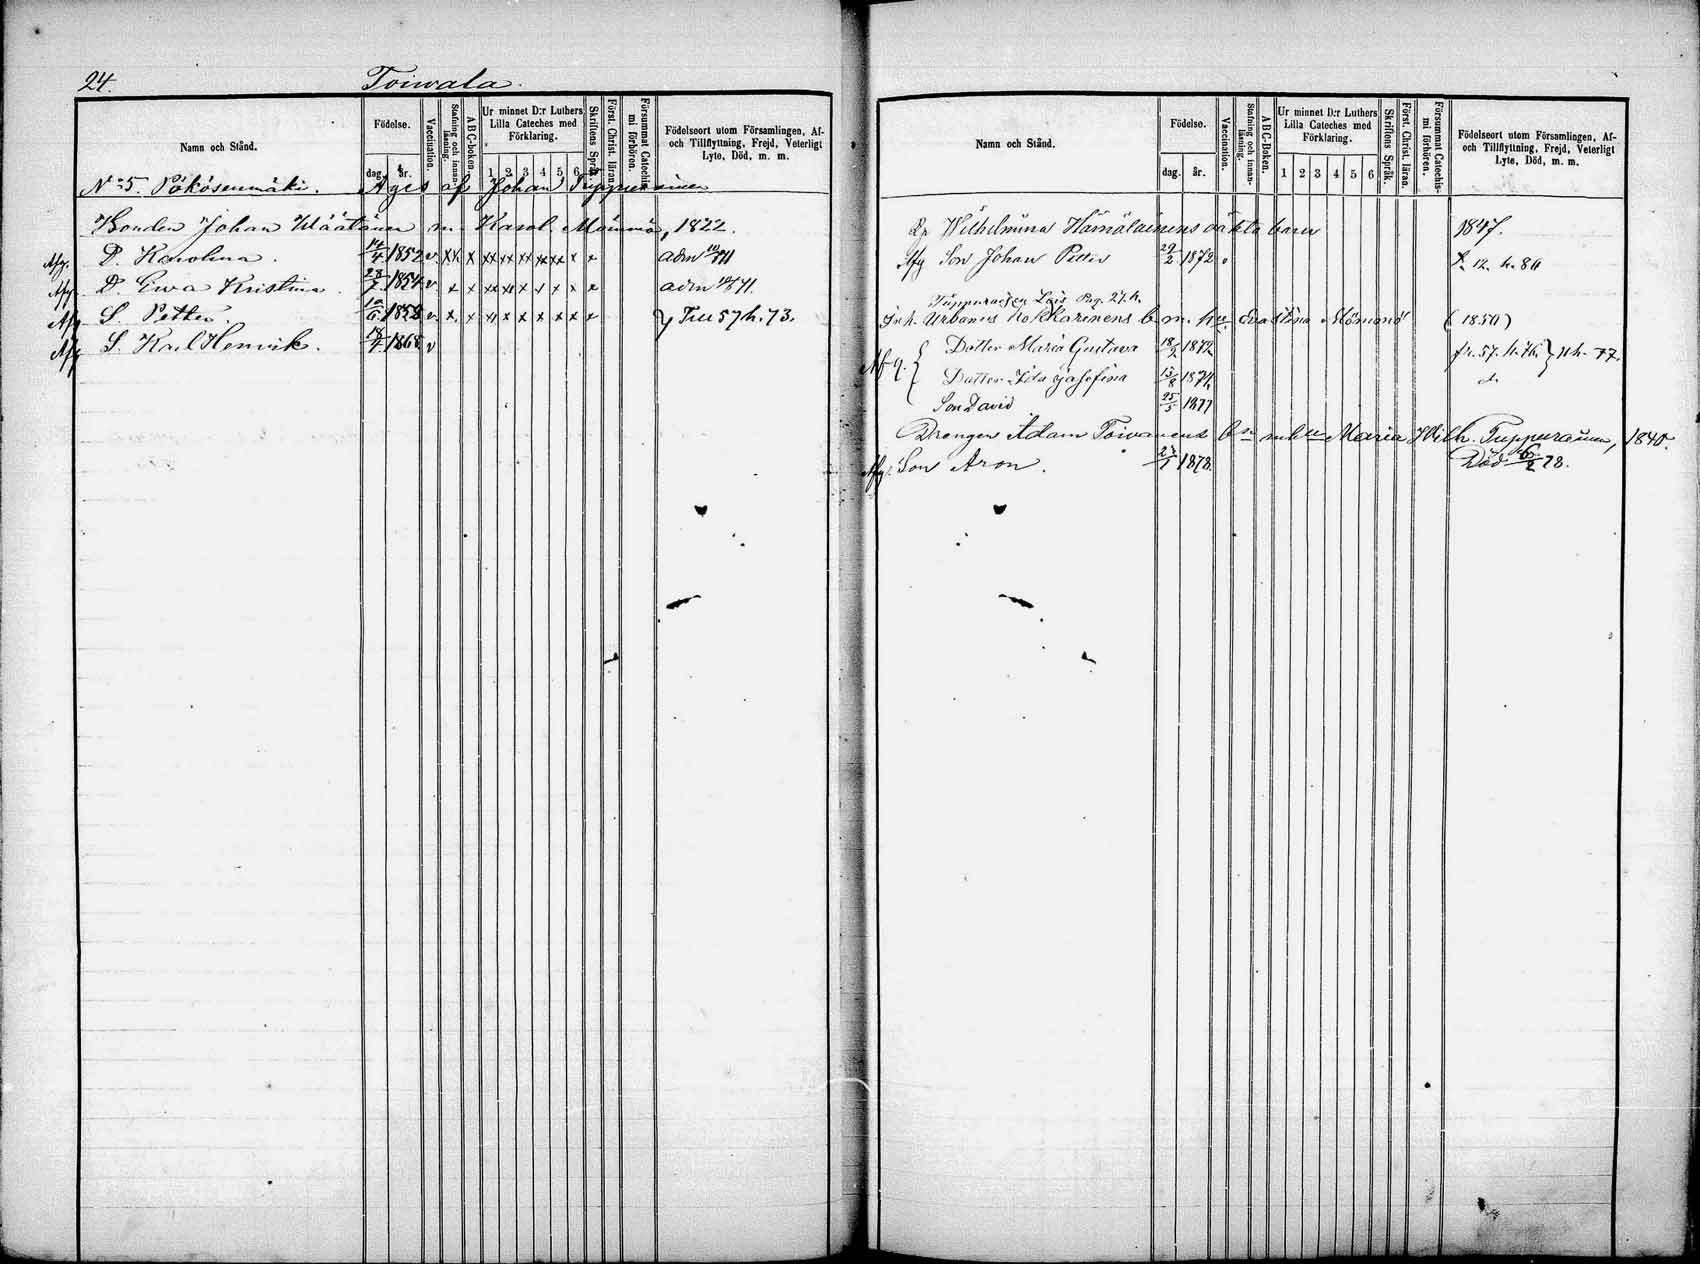 24.
Toiwala.
Namn och Stånd.
Födelse.
dag.
år.
Vaccination.
Stafning och innanläsning.
ABC-boken.
Ur minnet D:r Luthers Lilla Cateches med Förklaring.
1 2 3 4 5 6
Skriftens Språk.
Först. Christ. läran.
Försummat Catechismi förhören.
Födelseort utom Församlingen, Af- och Tillflyttning, Frejd, Veterligt Lyte, Död, m. m.
No 5. Pökösenmäki. Äges af Johan Tuppurainen
Bonden Johan Wäätänen m. Karol. Mömmö, 1822.
Afg. D. Karolina. 14/4 1852 v. adm
Afg. D. Ewa Kristina. 1854 v. adm 71.
Afg. S. Petter. 1858 v. Till 57 h. 73.
Afg S. Karl Henrik. 1865 v
Namn och Stånd.
Födelse.
dag.
år.
Vaccination.
Stafning och innanläsning.
ABC-Boken.
Ur minnet D:r Luthers Lilla Cateches med Förklaring.
1 2 3 4 5 6
Skriftens Språk.
Först. Christ. läran.
Försummat Catechismi förhören.
Födelseort utom Församlingen, Af- och Tillflyttning, Frejd, Veterligt Lyte, Död, m. m.
Wilhelmina Hämäläinens oäkta barn 1847.
Afg Son Johan Petter 29/2 1872 12. h. 80
Tuppuraisen Lois Pag. 27. h.
Inh. Urbanus Kokkarinens b. m. hu. Eva Stina Mömmö (1850)
Afg. { Dotter Maria Gustava 18/2 1872 fr. 57. h. 76. } uh. 77.
Dotter Ida Josefina 15/8 1874
Son David 25/5 1877
Drengen Adam Toivanens bn m hu Maria Wilh. Tuppurainen, 1840.
Afg. Son Aron. 1878. Död 6/2 78.